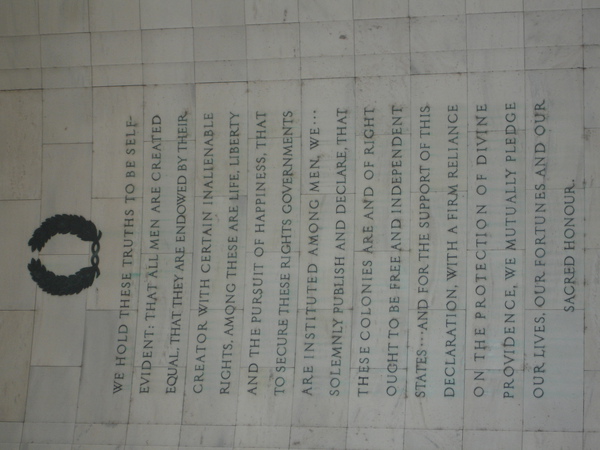 WE HOLD THESE TRUTHS TO BE SELF-
EVIDENT: THAT ALL MEN ARE CREATED
EQUAL, THAT THEY ARE ENDOWED BY THEIR
CREATOR WITH CERTAIN INALIENABLE
RIGHTS, AMONG THESE ARE LIFE, LIBERTY
AND THE PURSUIT OF HAPPINESS, THAT
TO SECURE THESE RIGHTS GOVERNMENTS
ARE INSTITUTED AMONG MEN, WE···
SOLEMNLY PUBLISH AND DECLARE, THAT
THESE COLONIES ARE AND OF RIGHT
OUGHT TO BE FREE AND INDEPENDENT
STATES···AND FOR THE SUPPORT OF THIS
DECLARATION, WITH A FIRM RELIANCE
ON THE PROTECTION OF DIVINE
PROVIDENCE, WE MUTUALLY PLEDGE
OUR LIVES, OUR FORTUNES AND OUR
SACRED HONOUR.